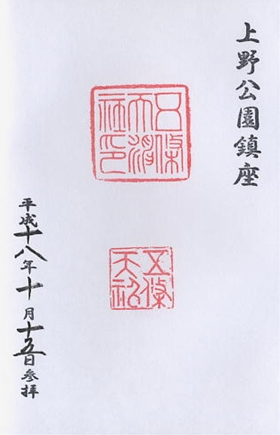 上野公園鎮座
五條天神社印
五條天神
平成十八年十月十五日参拝